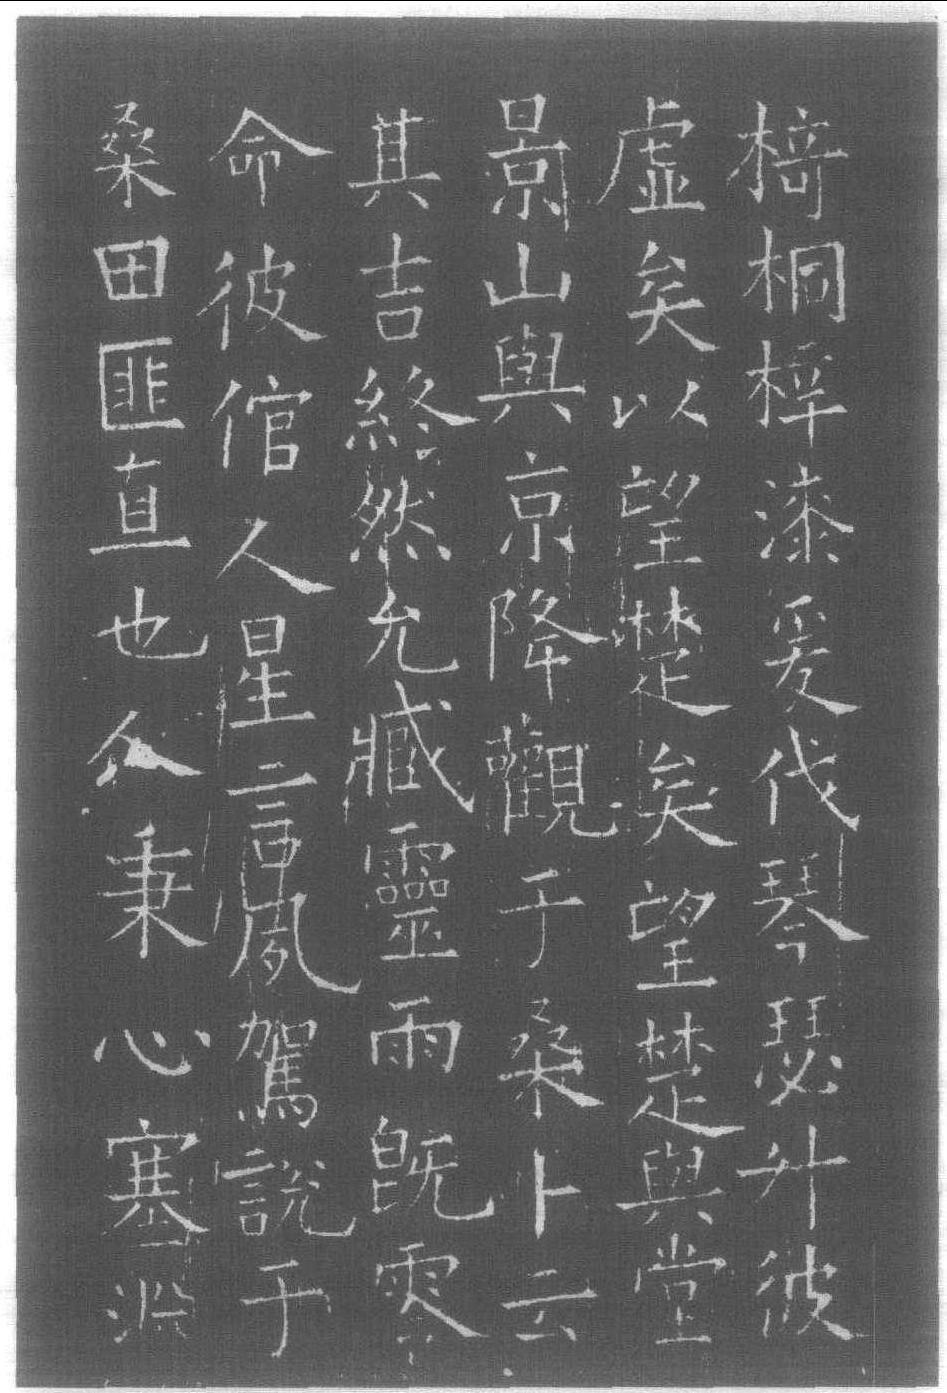 椅桐梓漆爰伐琴瑟升彼
虛矣以望楚矣望楚與堂
景山與京降觀于桑卜云
其吉終然允臧靈雨既零
命彼倌人星言夙駕說于
桑田匪直也人秉心塞淵